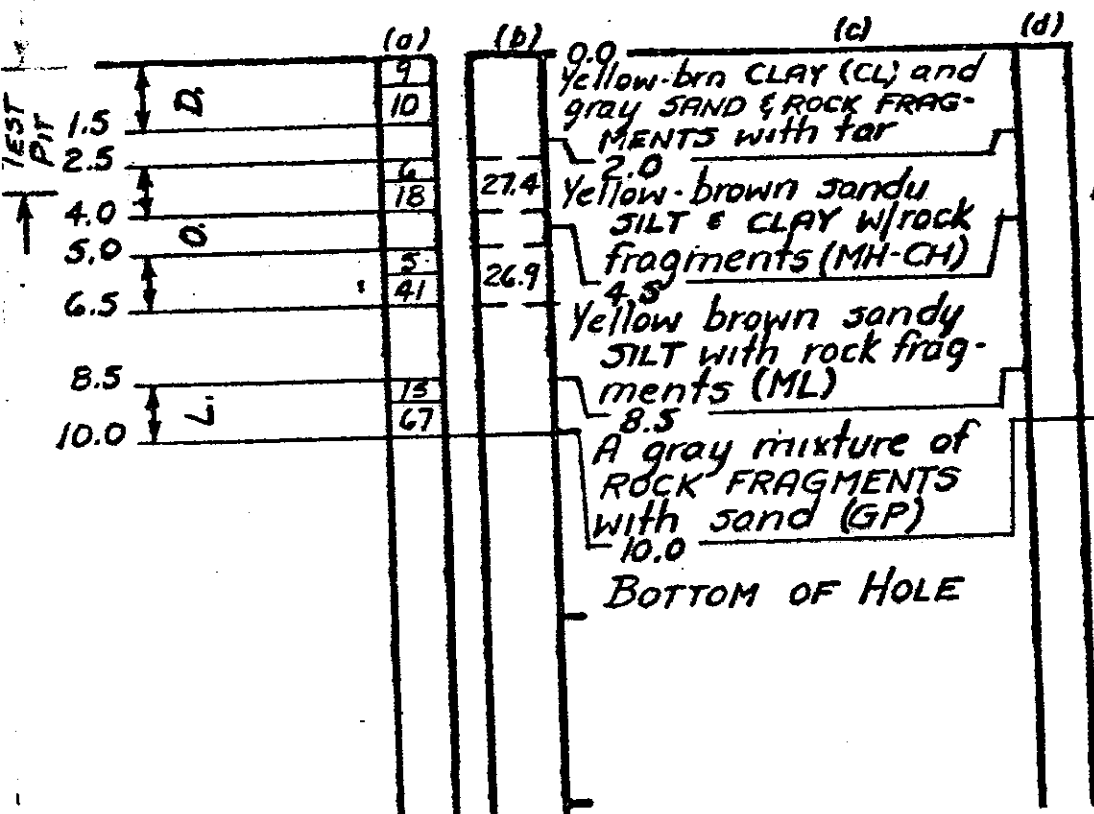 (a) (b) (c) (d)
TEST
PIT
D.
1.5
2.5
4.0
O.
5.0
6.5
8.5
L.
10.0
9
10
6
18
5
41
13
67
27.4
26.9
0.0
Yellow-brn CLAY (CL) and
gray SAND & ROCK FRAG-
MENTS with tar
2.0
Yellow-brown sandy
SILT & CLAY w/rock
fragments (MH-CH)
4.5
Yellow brown sandy
SILT with rock frag-
ments (ML)
8.5
A gray mixture of
ROCK FRAGMENTS
with sand (GP)
10.0
BOTTOM OF HOLE